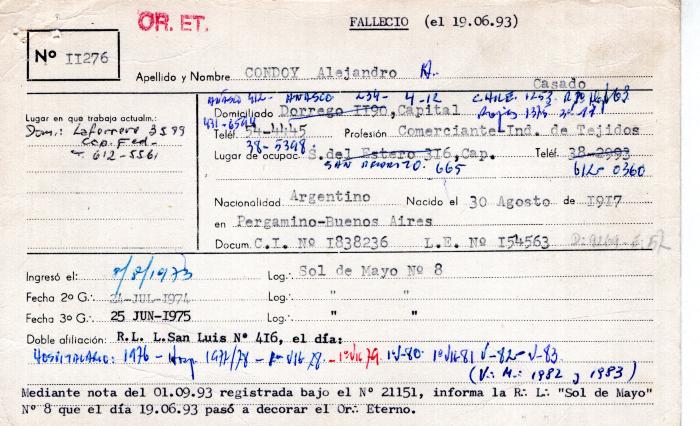 OR. ET.
FALLECIO (el 19.06.93)
Nº II276
Apellido y Nombre CONDOY Alejandro A.
Casado
AÑASCO 412- AÑASCO 234- 4-12 CHILE 1253
Domiciliado Dorrego II90,Capital Rojas 1375
431-6594
Teléf. 54-4445 Profesión Comerciante Ind. de Tejidos
38-5398
Lugar de ocupac. S.del Estero 3I6,Cap. Teléf. 38-2993
SAN BENITO. 665 612-0360
Lugar en que trabaja actualm.:
Dom.: Laferrere 3599
Cap. Fed.
T. 612-5561
Nacionalidad Argentino Nacido el 30 Agosto de I9I7
en Pergamino-Buenos Aires
Docum. C.I. Nº I838236 L.E. Nº I54563
Ingresó el: 8/8/1973 Log∴ Sol de Mayo Nº 8
Fecha 2º G∴ 24-JUL-I974 Log∴ " "
Fecha 3º G∴ 25 JUN-I975 Log∴ " "
Doble afiliación: R.L. L.San Luis Nº 4I6, el día:
HOSPITALARIO: 1976 - Hosp 1977/78 - 1º VII-79 1º V-80 1º VII-81 V-82- V-83.
(V∴ M∴ 1982 y 1983)
Mediante nota del 01.09.93 registrada bajo el Nº 21151, informa la R∴ L∴ "Sol de Mayo"
Nº 8 que el día 19.06.93 pasó a decorar el Or∴ Eterno.